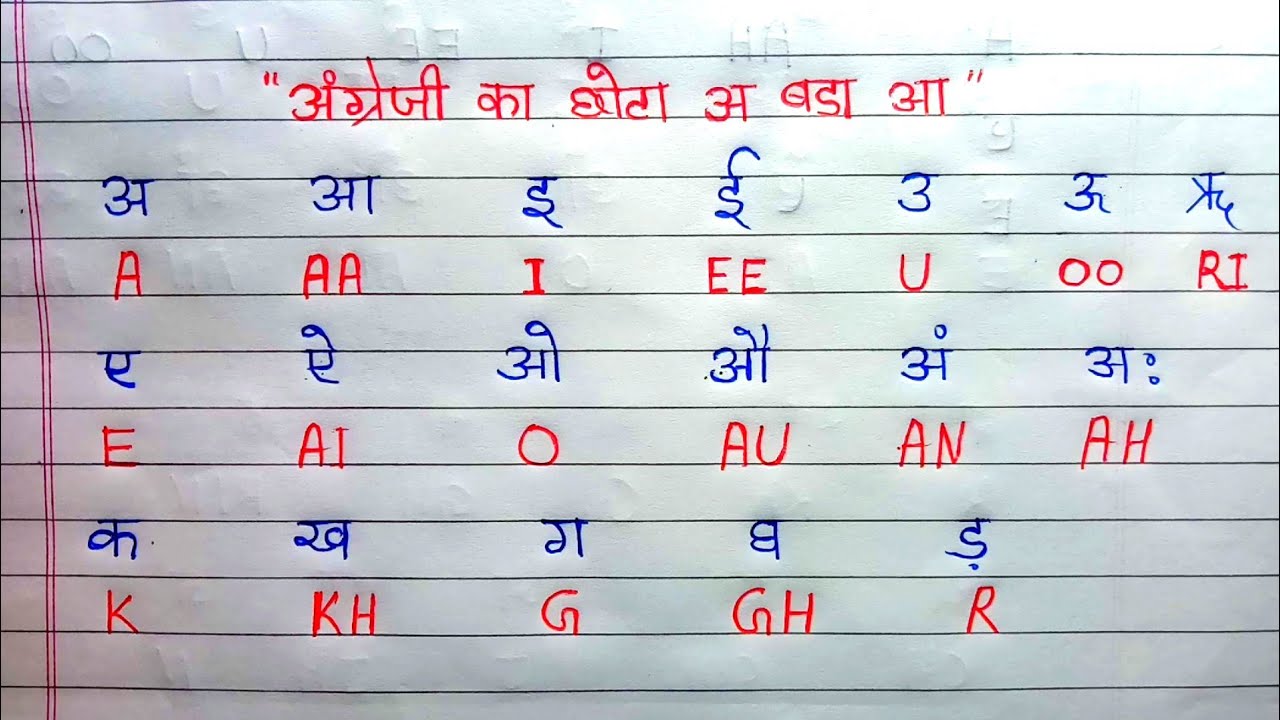 "अंग्रेजी का छोटा अ बडा आ"
अ आ इ ई उ ऊ ऋ
A AA I EE U OO RI
ए ऐ ओ औ अं अः
E AI O AU AN AH
क ख ग घ ड़
K KH G GH R